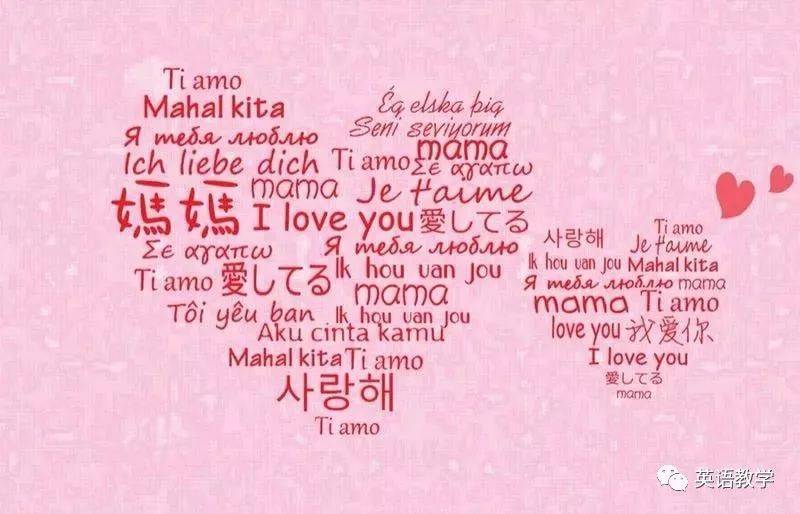 Ti amo
Mahal kita
Ég elska þig
Я тебя люблю
Seni seviyorum
Ich liebe dich Ti amo mama
Σε αγαπω
媽媽 mama Je t'aime
I love you 愛してる
Σε αγαπω Я тебя люблю
Ti amo 愛してる Ik hou van jou
mama
Tôi yêu bạn Ik hou van jou
Aku cinta kamu
Mahal kita Ti amo
사랑해
Ti amo
Ti amo
사랑해 Je t'aime
Ik hou van jou Mahal kita
Я тебя люблю mama
mama Ti amo
love you 我愛你
I love you
愛してる
mama
英语教学